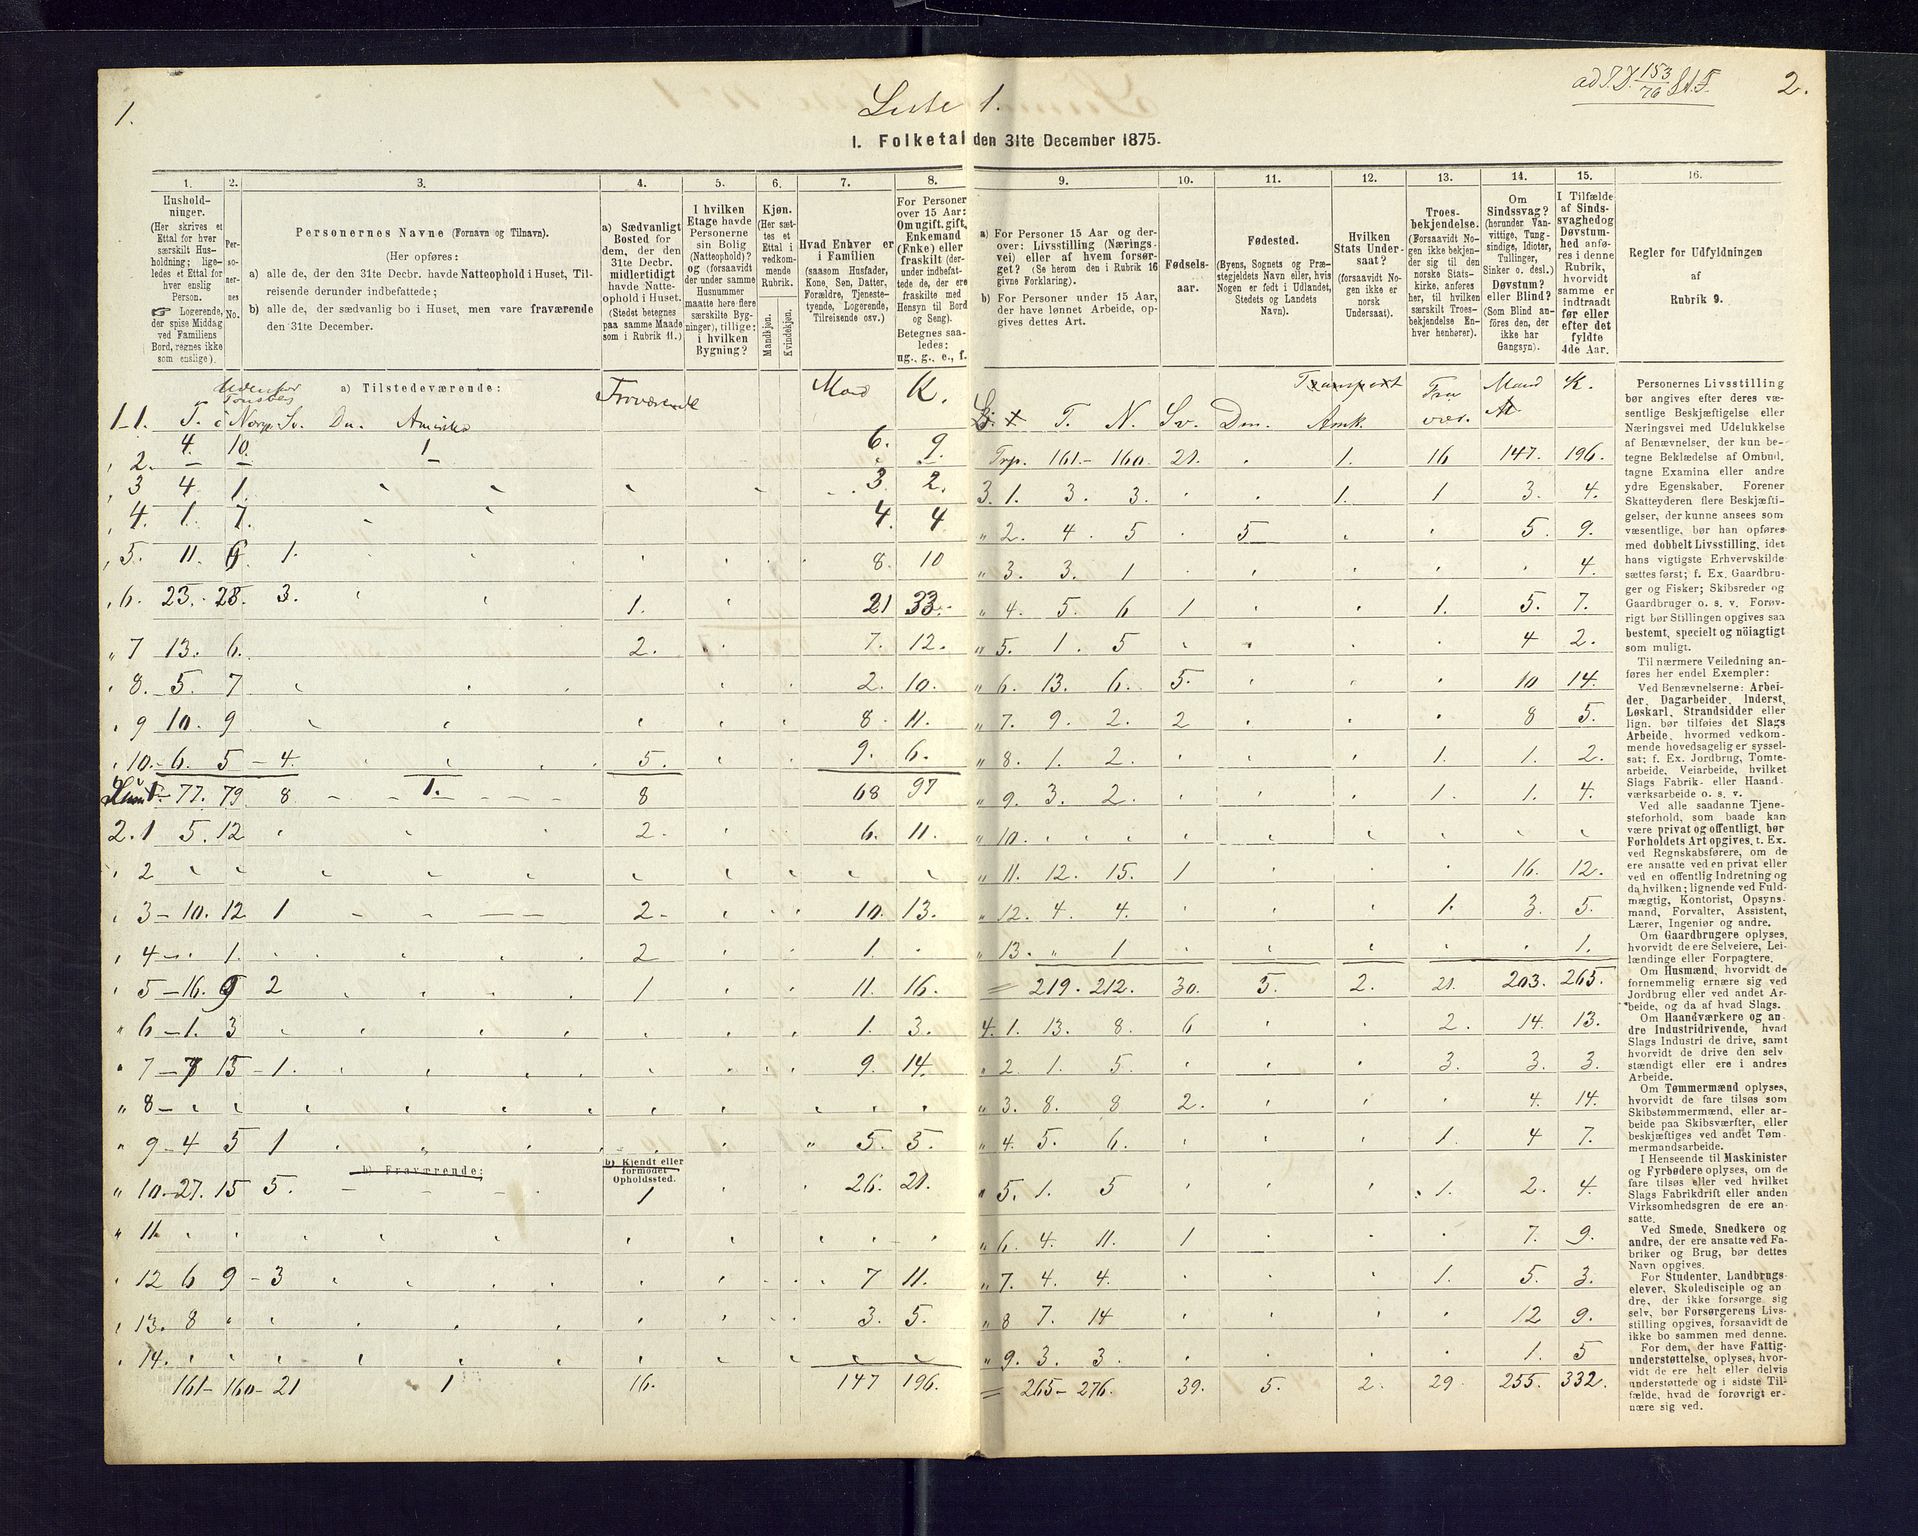 1.
Liste 1.
153
76
2.
1. Folketal den 31te December 1875.
1. 2. 3. 4. 5. 6. 7. 8. 9. 10. 11. 12. 13. 14. 15. 16.
Hushold-
ninger.
(Her skrives et
Ettal for hver
særskilt Hus-
holdning; lige-
ledes et Ettal for
hver enslig
Person.
☞ Logerende,
der spise Middag
ved Familiens
Bord, regnes ikke
som enslige).
Per-
so-
ner-
nes
No.
Personernes Navne (Fornavn og Tilnavn).
(Her opføres:
a) alle de, der den 31te Decbr. havde Natteophold i Huset, Til-
reisende derunder indbefattede;
b) alle de, der sædvanlig bo i Huset, men vare fraværende
den 31te December.
a) Sædvanligt
Bosted for
dem, der den
31te Decbr.
midlertidigt
havde Natte-
ophold i Huset.
(Stedet betegnes
paa samme Maade
som i Rubrik 11.)
I hvilken
Etage havde
Personerne
sin Bolig
(Natteophold)?
og (forsaavidt
der under samme
Husnummer
maatte høre flere
særskilte Byg-
ninger), tillige:
i hvilken
Bygning?
Kjøn.
(Her sæt-
tes et
Ettal i
vedkom-
mende
Rubrik.
Mandkjøn.
Kvindekjøn.
Hvad Enhver er
i Familien
(saasom Husfader,
Kone, Søn, Datter,
Forældre, Tjeneste-
tyende, Logerende,
Tilreisende osv.)
For Personer
over 15 Aar:
Om ugift, gift,
Enkemand
(Enke) eller
fraskilt (der-
under indbefat-
tede de, der ere
fraskilte med
Hensyn til Bord
og Seng).
Betegnes saa-
ledes:
ug., g., e., f.
a) For Personer 15 Aar og der-
over: Livsstilling (Nærings-
vei) eller af hvem forsør-
get? (Se herom den i Rubrik 16
givne Forklaring).
b) For Personer under 15 Aar,
der have lønnet Arbeide, op-
gives dettes Art.
Fødsels-
aar.
Fødested.
(Byens, Sognets og Præ-
stegjeldets Navn eller, hvis
Nogen er født i Udlandet,
Stedets og Landets
Navn).
Hvilken
Stats Under-
saat?
(forsaavidt No-
gen ikke er
norsk
Undersaat).
Troes-
bekjendelse.
(Forsaavidt No-
gen ikke bekjen-
der sig til den
norske Stats-
kirke, anføres
her, til hvilken
særskilt Troes-
bekjendelse En-
hver henhører).
Om
Sindssvag?
(herunder Van-
vittige, Tung-
sindige, Idioter,
Tullinger,
Sinker o. desl.)
Døvstum?
eller Blind?
(Som Blind an-
føres den, der
ikke har
Gangsyn).
I Tilfælde
af Sinds-
svaghed og
Døvstum-
hed anfø-
res i denne
Rubrik,
hvorvidt
samme er
indtraadt
før eller
efter det
fyldte
4de Aar.
Regler for Udfyldningen
af
Rubrik 9.
a) Tilstedeværende:
Udenfor
Tonsberg
Fraværende Mand K.
1-1. T. i Norge Sv. Dn. Amerika
4. 10. 1 6. 9.
2. - - -
3 4 1. 3. 2.
4. 1. 7. 4. 4
5. 11. 6. 1. 8. 10
6. 23. 28. 3. 1. 21 33.
7 13. 6. 2. 7. 12.
8. 5. 7 2. 10.
9 10. 9 8. 11.
10. 6. 5 - 4. 5. 9. 6.
77. 79 8 1. 8 68 97
2. 1 5. 12 2. 6. 11.
2
3 - 10. 12 1 2 10. 13.
4 1. 2 1.
5 - 16. 9 2 1 11. 16.
6 - 1. 3 1. 3.
7 - 7 15 - 1. 9. 14.
8
9 - 4 5 1 5. 5.
b) Fraværende:
b) Kjendt eller
formodet
Opholdssted.
10 - 27. 15 5. 1 26. 21.
11.
12 6 9 - 3 7 11.
13. 8 3. 5.
14.
161 - 160 - 21 1 16. 147 196.
Transport Mand K.
T. N. Sv. Den. Amk.
Trp. 161 - 160. 21. 1. 16 147. 196.
3. 1. 3 3. 1. 1 3. 4.
2. 4 5 5 5. 9.
3. 3. 1 4.
4. 5. 6 1 1. 5. 7.
5. 1. 5 4 2.
6. 13. 6. 5. 10 14.
7. 9. 2. 2 8 5.
8. 1. 2. 1. 1. 2.
9. 3. 2. 1. 1. 4.
10.
11. 12. 15. 1 16. 12.
12. 4. 4. 1. 3. 5.
13. 1 1.
219. 212. 30. 5. 2. 21. 203. 265.
4. 1. 13. 8. 6 2. 14. 13.
2. 1. 5. 3. 3. 3.
3. 8. 8 2. 4. 14.
4. 5. 6. 1. 4 7.
5. 1. 5 1. 2. 4.
6. 4. 11. 1 7. 9.
7. 4. 4. 1. 5. 3.
8 7. 14 12 9.
9. 3. 3. 1. 5
265 - 276. 39. 5. 2. 29. 255. 332.
Personernes Livsstilling
bør angives efter deres væ-
sentlige Beskjæftigelse eller
Næringsvei med Udelukkelse
af Benævnelser, der kun be-
tegne Beklædelse af Ombud,
tagne Examina eller andre
ydre Egenskaber. Forener
Skatteyderen flere Beskjæfti-
gelser, der kunne ansees som
væsentlige, bør han opføres
med dobbelt Livsstilling, idet
hans vigtigste Erhvervskilde
sættes først; f. Ex. Gaardbru-
ger og Fisker; Skibsreder og
Gaardbruger o. s. v. Forøv-
rigt bør Stillingen opgives saa
bestemt, specielt og nøiagtigt
som muligt.
Til nærmere Veiledning an-
føres her endel Exempler:
Ved Benævnelserne: Arbei-
der, Dagarbeider, Inderst,
Løskarl, Strandsidder eller
lign. bør tilføies det Slags
Arbeide, hvormed vedkom-
mende hovedsagelig er syssel-
sat; f. Ex. Jordbrug, Tomte-
arbeide, Veiarbeide, hvilket
Slags Fabrik- eller Haand-
værksarbeide o. s. v.
Ved alle saadanne Tjene-
steforhold, som baade kan
være privat og offentligt, bør
Forholdets Art opgives, t. Ex.
ved Regnskabsførere, om de
ere ansatte ved en privat eller
ved en offentlig Indretning og
da hvilken; lignende ved Fuld-
mægtig, Kontorist, Opsyns-
mand, Forvalter, Assistent,
Lærer, Ingeniør og andre.
Om Gaardbrugere oplyses,
hvorvidt de ere Selveiere, Lei-
lændinge eller Forpagtere.
Om Husmænd, hvorvidt de
fornemmelig ernære sig ved
Jordbrug eller ved andet Ar-
beide, og da af hvad Slags.
Om Haandværkere og an-
dre Industridrivende, hvad
Slags Industri de drive, samt
hvorvidt de drive den selv-
stændigt eller ere i andres
Arbeide.
Om Tømmermænd oplyses,
hvorvidt de fare tilsøs som
Skibstømmermænd, eller ar-
beide paa Skibsværfter, eller
beskjæftiges ved andet Tøm-
mermandsarbeide.
I Henseende til Maskinister
og Fyrbødere oplyses, om de
fare tilsøs eller ved hvilket
Slags Fabrikdrift eller anden
Virksomhedsgren de ere an-
satte.
Ved Smede, Snedkere og
andre, der ere ansatte ved Fa-
briker og Brug, bør dettes
Navn opgives.
For Studenter, Landbrugs-
elever, Skoledisciple og an-
dre, der ikke forsørge sig
selv, bør Forsørgerens Livs-
stilling opgives, forsaavidt de
ikke bo sammen med denne.
For dem, der have Fattig-
understøttelse, oplyses, hvor-
vidt de ere helt eller delvis
understøttede og i sidste Til-
fælde, hvad de forøvrigt er-
nære sig ved.